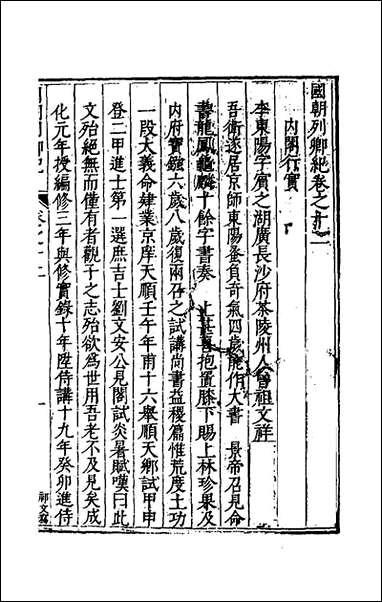 國朝列卿紀卷之十一
內閣行實
李東陽字賓之湖廣長沙府茶陵州人曾祖文祥
吾衛遂居京師東陽蚤負奇氣四歲能作大書 景帝召見命
書龍鳳龜麟十餘字書奏 上甚喜抱置膝下賜上林珍果及
內府寶鏹六歲八歲復兩召之試講尚書益稷篇惟荒度土功
一段大義命肄業京庠天順壬午年甫十六舉順天鄉試甲申
登二甲進士第一選庶吉士劉文安公見閣試炎暑賦嘆曰此
文殆絕無而僅有者觀子之志殆欲為世用吾老不及見矣成
化元年授編修三年與修實錄十年陞侍講十九年癸卯進侍
一